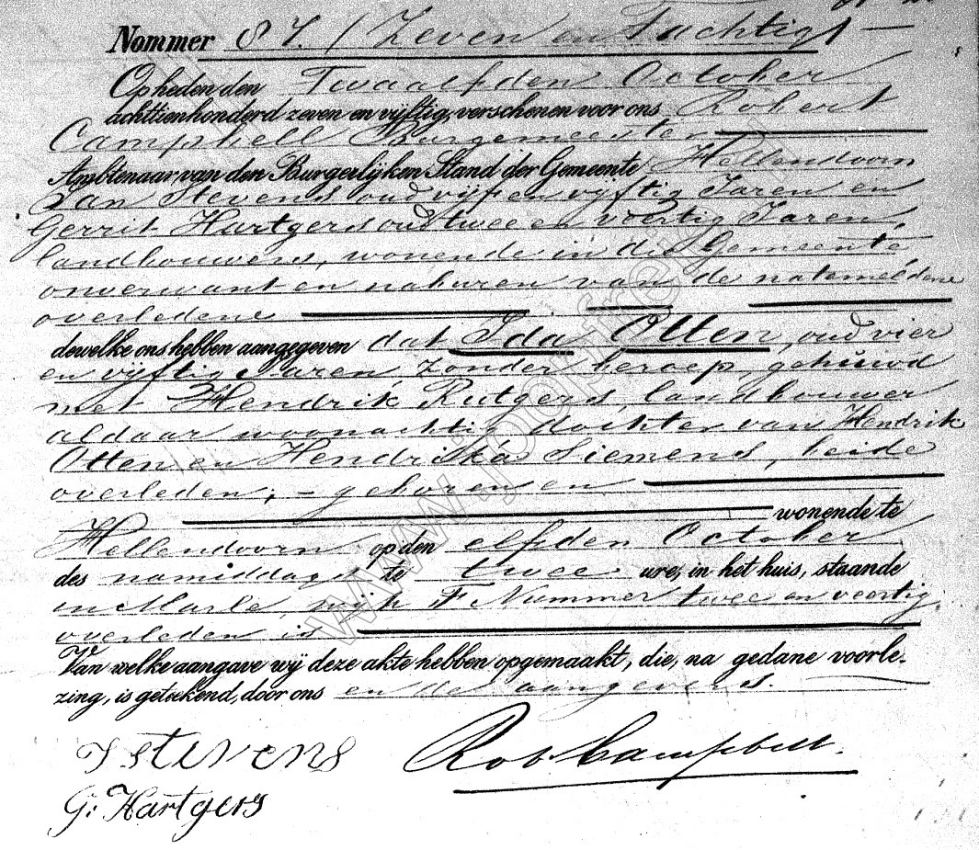 Nommer 87. (Zeven en Tachtig)
Op heden den Twaalfden October
achttienhonderd zeven en vijftig, verschenen voor ons Robert
Campbell Burgemeester
Ambtenaar van den Burgerlijken Stand der Gemeente Hellendoorn
Jan Stevens oud vijf en vijftig Jaren en
Gerrit Hartgers oud twee en veertig Jaren,
landbouwers, wonende in die Gemeente
onverwant en naburen van de natemeldene
overledene
dewelke ons hebben aangegeven dat Ida Otten, oud vier
en vijftig Jaren, zonder beroep, gehuwd
met Hendrik Rutgers, landbouwer
aldaar woonachtig dochter van Hendrik
Otten en Hendrika Siemens, beide
overleden; - geboren en
wonende te
Hellendoorn op den elfden October
des namiddags te twee ure, in het huis, staande
in Marle, wijk F Nummer twee en veertig,
overleden is
Van welke aangave wij deze akte hebben opgemaakt, die, na gedane voorle-
zing, is geteekend, door ons en de aangevers.
J Stevens
Rob Campbell.
G: Hartgers